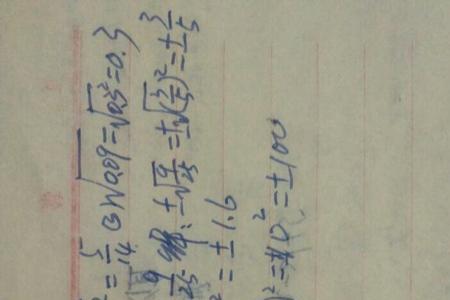 = 5/14 ③ √0.09 = √0.3² = 0.3
9/25 : ±√9/25 = ±√(3/5)² = ±3/5
² = ±1.6
)² = ±10² = ±100